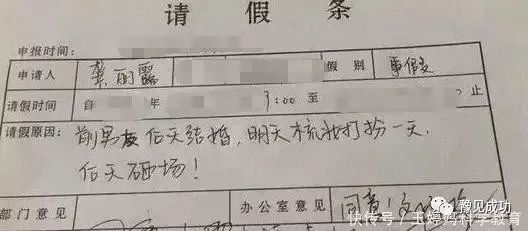 请假条
申报时间:
申请人 龚丽露 假别 事假
请假时间 自 年 1:00 至 止
请假原因: 前男友后天结婚,明天梳妆打扮一天,
后天砸场!
部门意见 办公室意见 同意!
豫见成功
快传号/玉婷妈科学教育